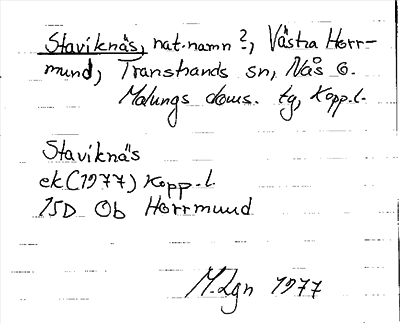 Staviknäs, nat.namn?, Västra Horr-
mund, Transtrands sn, Nås o.
Malungs doms. tg, Kopp.l.
Staviknäs
ek (1977) Kopp.l.
15D Ob Horrmund
M.Lgn 1977